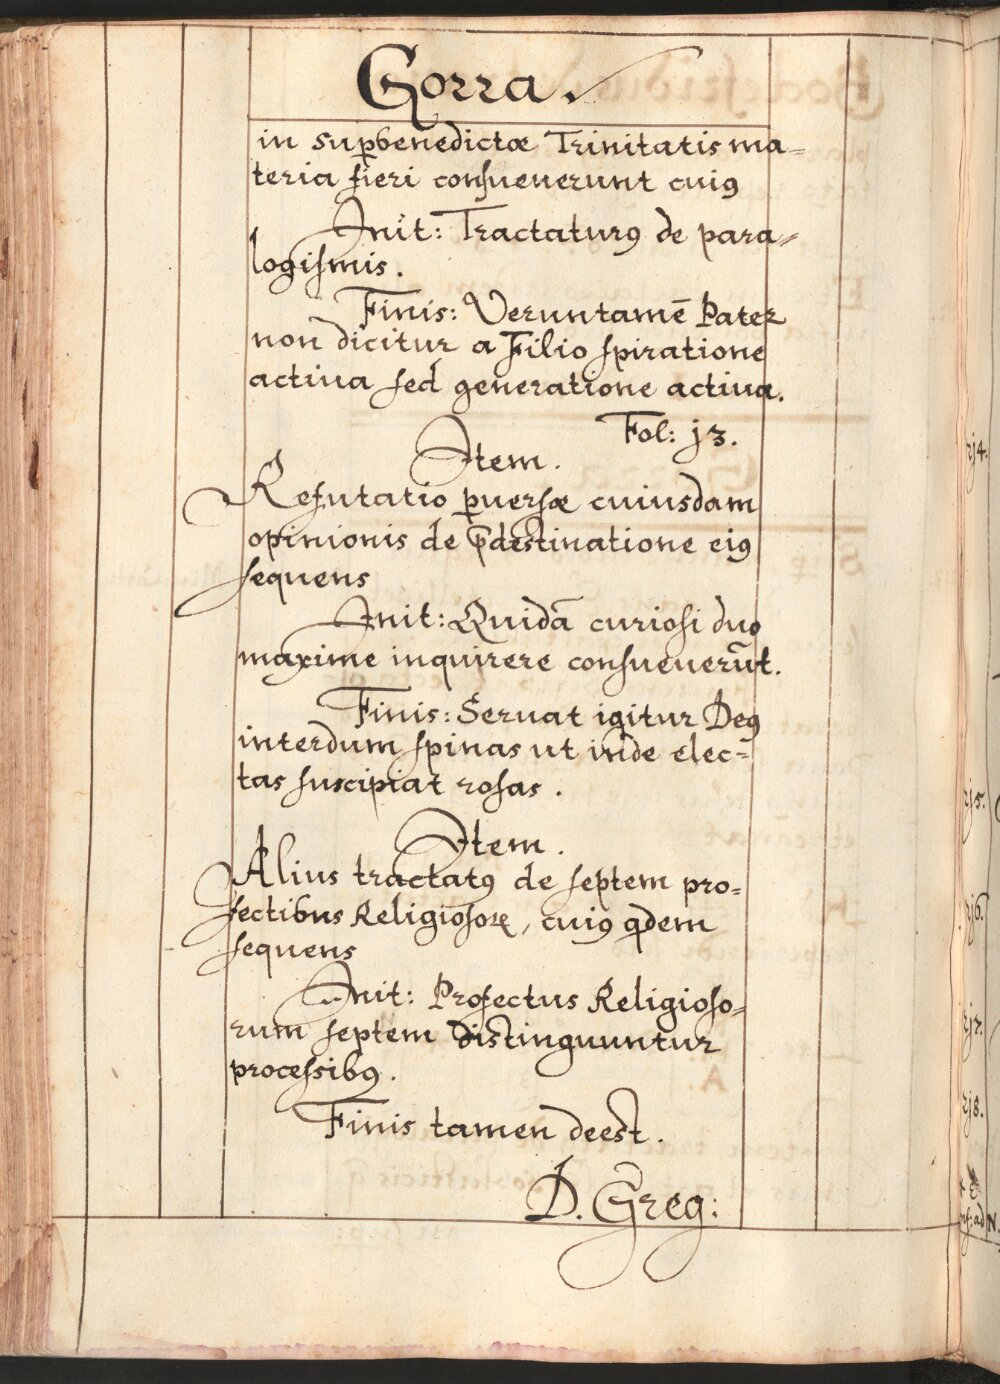 Gorra.
in supbenedictæ Trinitatis ma=
teria fieri consueuerunt cuiꝰ
Init: Tractaturꝰ de para=
logismis.
Finis: Veruntamē Pater
non dicitur a Filio spiratione
actiua sed generatione actiua.
Fol: j3.
Item.
Refutatio ꝑuersæ cuiusdam
opinionis de p̄destinatione eiꝰ
sequens
Init: Quidā curiosi duo
maxime inquirere consueuerūt.
Finis: Seruat igitur Deꝰ
interdum spinas ut inde elec=
tas suscipiat rosas.
Item.
Alius tractatꝰ de septem pro=
fectibus Religiosoꝝ, cuiꝰ qdem
sequens
Init: Profectus Religioso=
rum septem distinguuntur
processibꝰ.
Finis tamen deest.
D. Greg:
rj4.
rj5.
rj6.
rj7.
rj8.